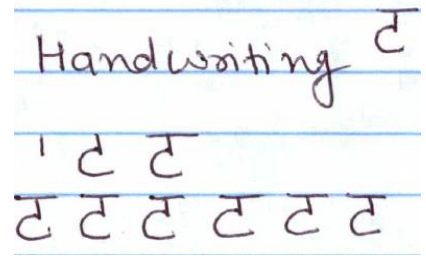 Handwriting ट
। ट ट
ट ट ट ट ट ट